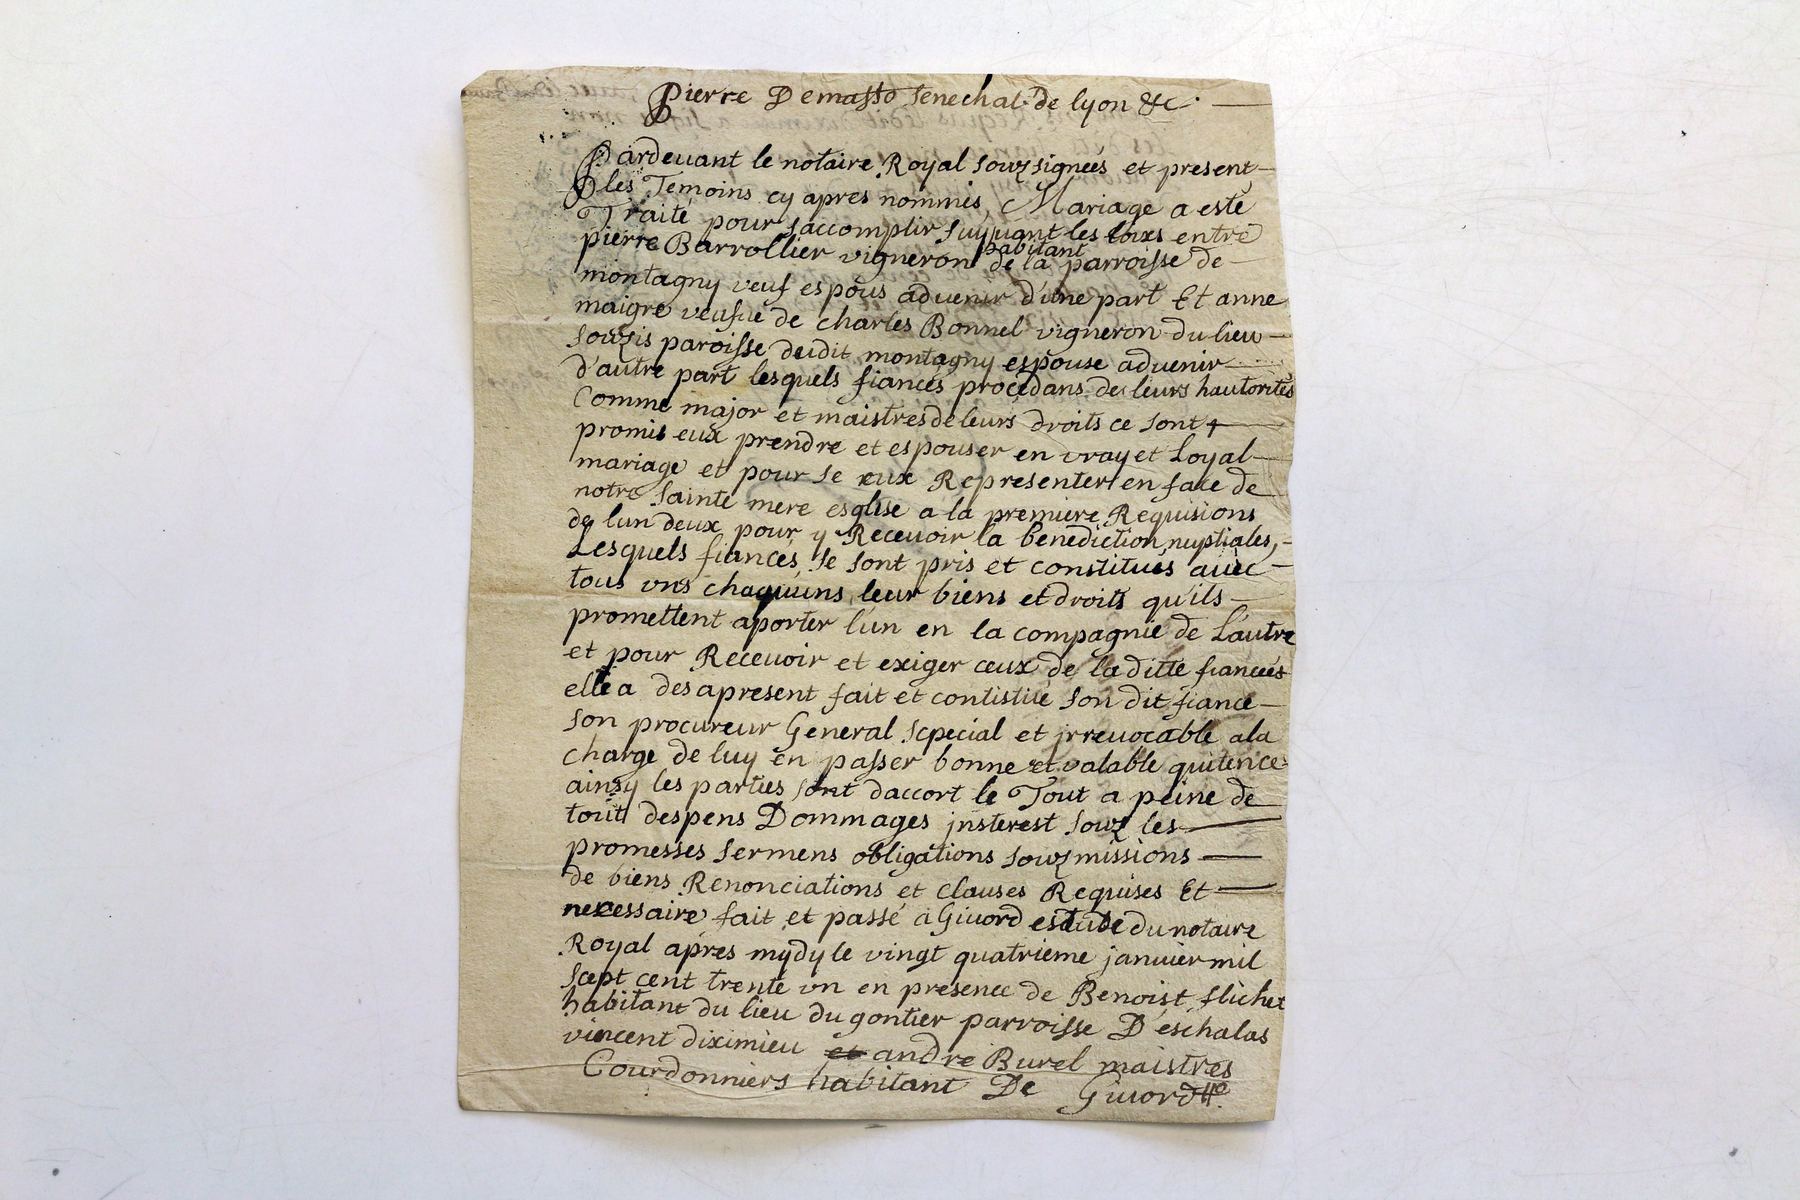 Pierre Demasso Senechal de lyon &c.
Pardeuant le notaire Royal Souzsignées et present
les Temoins cy apres nommés, Mariage a esté
Traité pour saccomplir suyuant les loixs entre
pierre Barrollier vigneron habitant de la parroisse de
montagny veuf espous aduenir d'une part Et anne
maigre veufue de charles Bonnel vigneron du lieu
Souzis paroisse deudit montagny espouse aduenir
d'autre part lesquels fiancés procedans de leurs hautorités
Comme major et maistres de leurs droits ce sont
promis eux prendre et espouser en vray et Loyal
mariage et pour se eux Representer en face de
notre Sainte mere esglise a la premiere Requisions
de lun deux pour y Receuoir la benediction nuptiales,
Lesquels fiancés se sont pris et constitués auéc
tous vns chaquuns leur biens et droits qu'ils
promettent aporter l'un en la compagnie de L'autre
et pour Receuoir et exiger ceux de la ditte fiancées
elle a des apresent fait et contistué son dit fiance
son procureur General Scpecial et jrreuocable a la
charge de luy en passer bonne et valable quitence
ainsy les parties sont daccort le Tout a peine de
tout despens Dommages jnsterest Souz les
promesses Sermens obligations souzmissions
de biens Renonciations et Clauses Requises Et
necessaire fait et passé a Giuord estude du notaire
Royal apres mydy le vingt quatrieme januier mil
Scept cent trente vn en presence de Benoist flichet
habitant du lieu du gontier parroisse D'eschalas
vincent diximieu et andre Burel maistres
Courdonniers habitant De Giuord